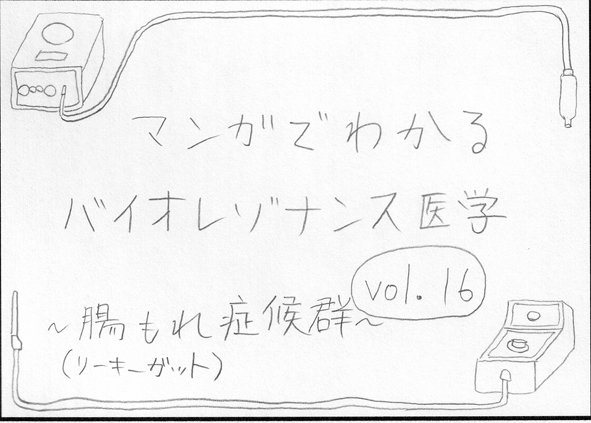 マンガでわかる
バイオレゾナンス医学
vol.16
~腸もれ症候群~
(リーキーガット)